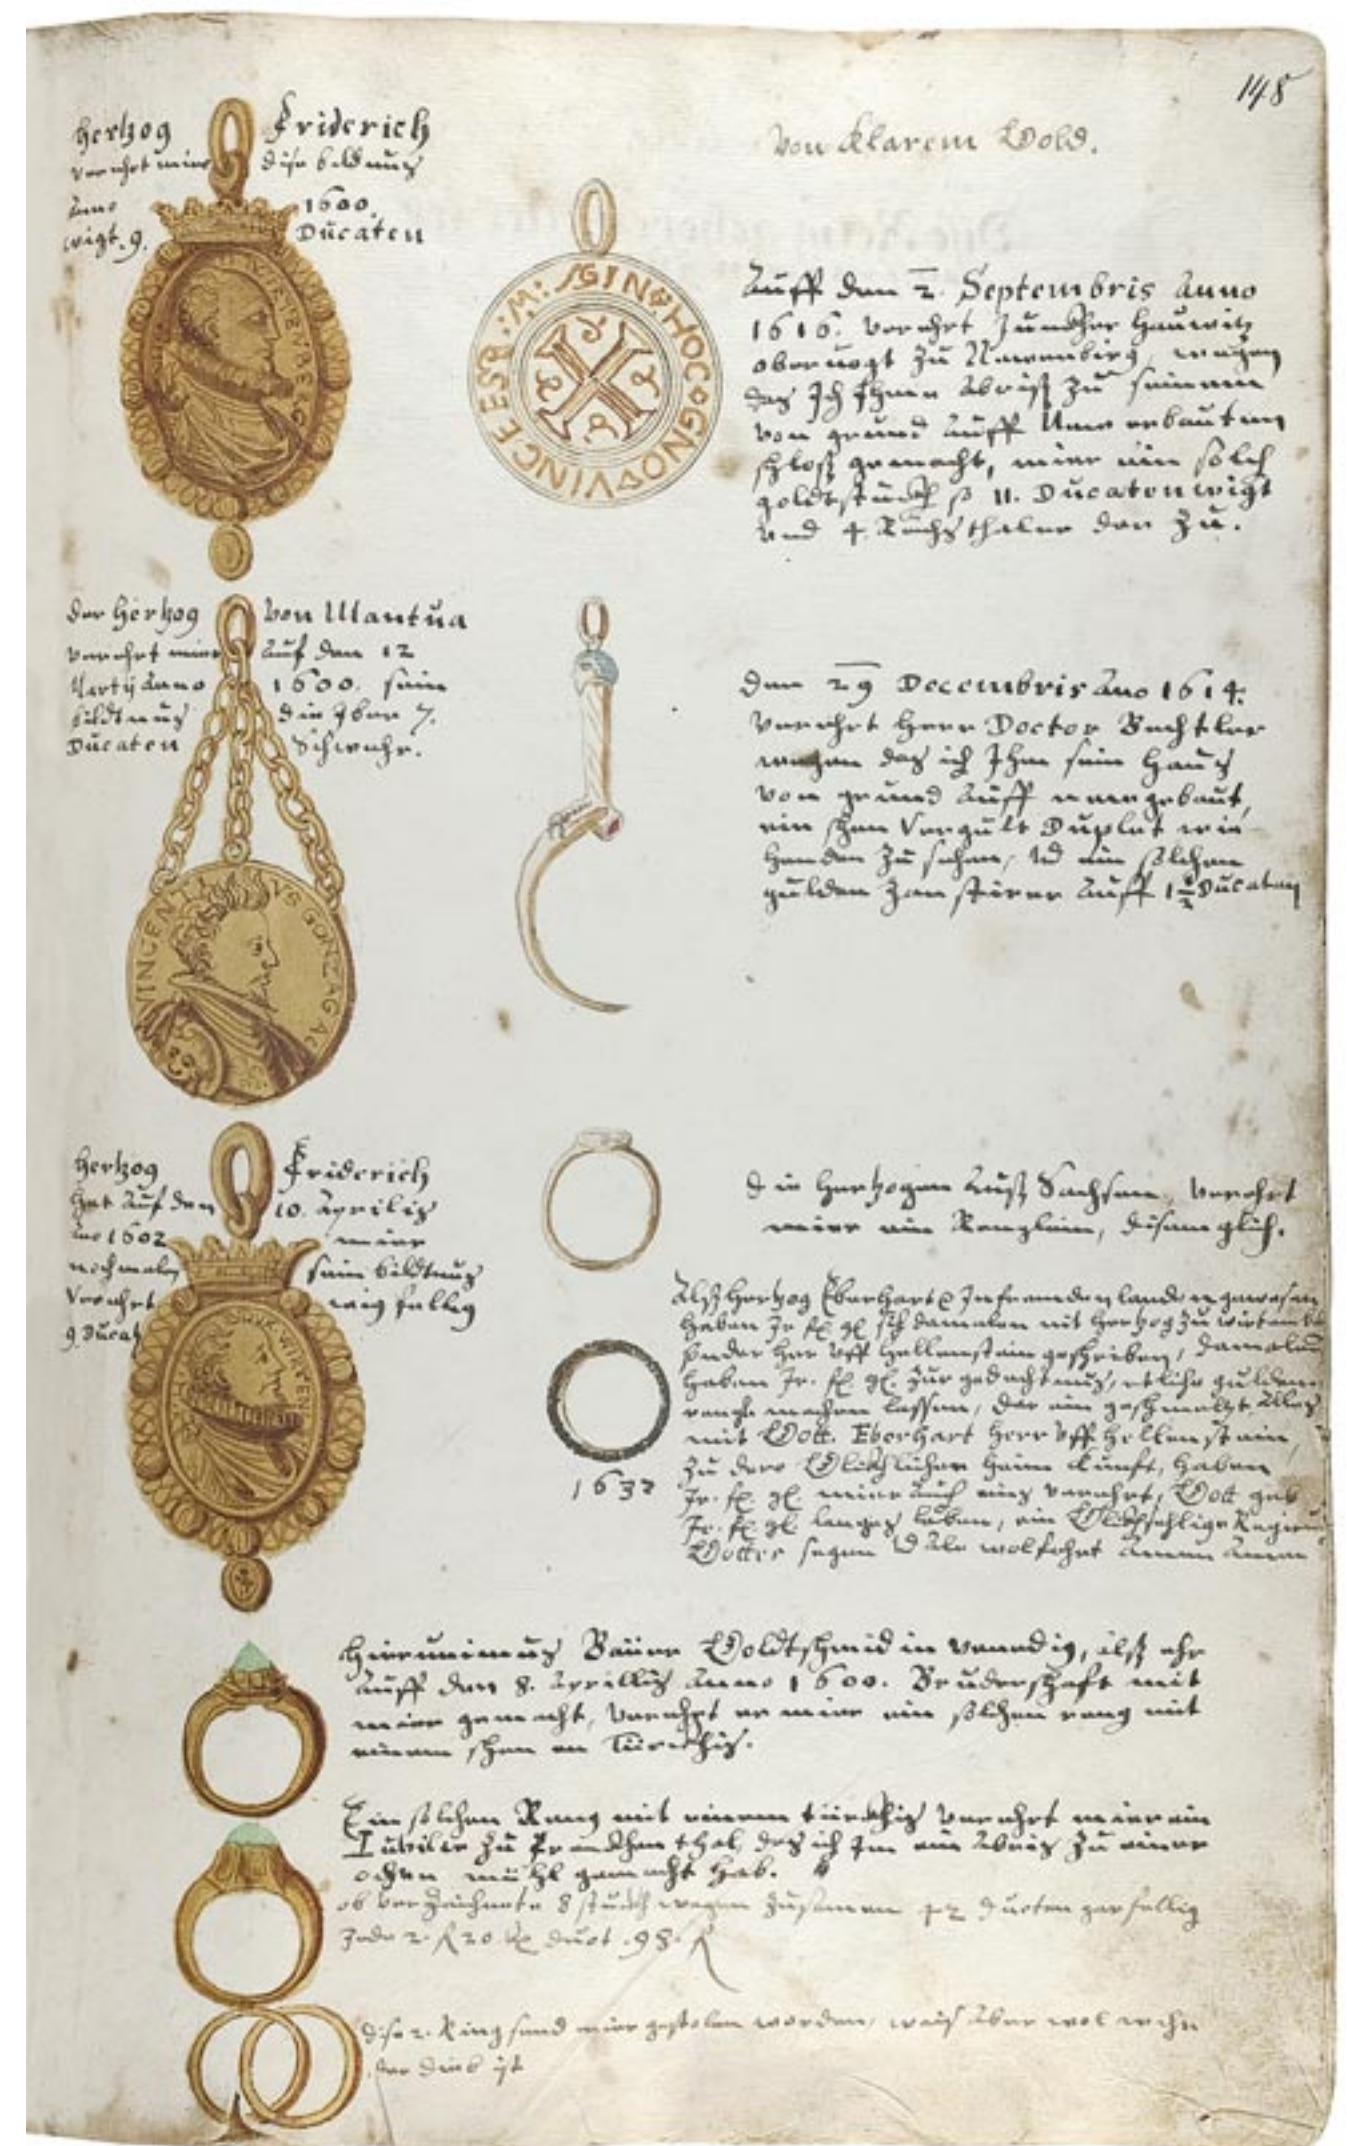 148
Von klarem Gold.
Hertzog Friderich
verehrt mir dise bildnus
Anno 1600.
wigt. 9. Ducaten
WIRTEMBERG
IN HOC SIGNO VINCES
Auff den 2. Septembris Anno
1616. verehrt Junckher Hauwitz
obervogt zu Nawenbirg, wegen
das Ich Ihme Abriss zu seinem
von grund auff New erbauten
schloss gemacht, mier ein solch
goldtstückh so 11. Ducaten wigt
und 4 Reichsthaler dar zu.
der Hertzog von Mantua
verehrt mier auf den 12
Martÿ Anno 1600. sein
bildtnus die Iber 7.
Ducaten Schwehr.
VINCENTIVS GONZAGA
Den 29 Decembris Ano 1614.
verehrt Herr Doctor Bechtler
wegen das ich Ihm sein Haus
von grund auff neuw gebaut,
ein schen Vergült Duplet wie
handen zu sehen, ein solchen
gulden Zanstirer auff 1½ Ducaten
Hertzog Friderich
hat Auf den 10. Aprilis
Ano 1602 mier
nochmalen sein bildtnus
Verehrt wigt fellig
9 Ducat
die Hertzogin auss Sachsen, verehrt
mier ein Renglein, disem glich.
1632
Alss Hertzog Eberhart Ie in fremden landen gewesen
haben Ir fl. gl. sich damalen nit Hertzog zu wirtemb
sonder Her uff Hellenstain geschriben, damalen
haben Ir. fl. gl. zur gedechtnus, etliche guldene
rengle machen lassen, dar ein geschmeltzt, Alles
mit Gott. Eberhart Herr uff Hellenstain,
zu dero Glicklichen heim kunft, haben
Ir. fl. gl. mier auch eins verehrt, Gott geb
Ir. fl. gl. langes leben, ein Glickhselige Regieru
Gottes segen wolfahrt Amen Amen
Hieronimus Baur Goldtschmid in Venedig, alss ehr
Auff den 8. Aprillis Anno 1600. Bruderschaft mit
mier gemacht, verehrt er mier ein solchen reng mit
einem schen en Türckhis.
Ein solchen Reng mit einem türckhis verehrt mier ein
Jubilir zu Franckhen thal, das ich Im ein Abris zu einer
ochsen mühl gemacht hab.
ob verzeichnete 8 stuckh wegen zusamen 42 Ducten gar fellig
Jede 2. fl 20 Duct. 98. fl
dise 2. Ring send mier gestolen worden, weis aber wol wehr
der dieb ist